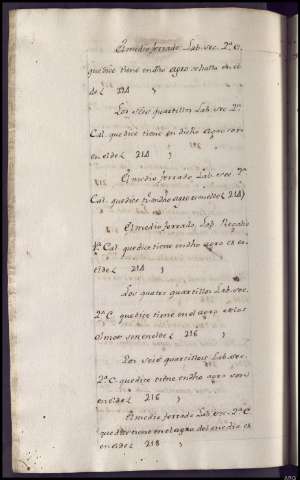 El medio ferrado Lab. sec. 2ª C.
que dice tiene en dho agro se halla en el
de ( 214 )
Los seis quartillos Lab. sec. 2ª
Cal. que dice tiene en dicho Agro son
en el de ( 214 )
El medio ferrado Lab. sec.
Cal. que dice tiene en dho agro es en el de ( 214 )
El medio ferrado, Lab. Regadio
1ª Cal. que dice tiene en dho agro es en
el de ( 214 )
Los quatro quartillos Lab. sec.
2ª C. que dice tiene en el agro
son en el de ( 216 )
Los seis quartillos Lab. sec.
2ª C. que dice tiene en dho agro son
en el de ( 216 )
El medio ferrado Lab. sec. 2ª C
que dice tiene en el agro del medio es
en el de ( 218 )